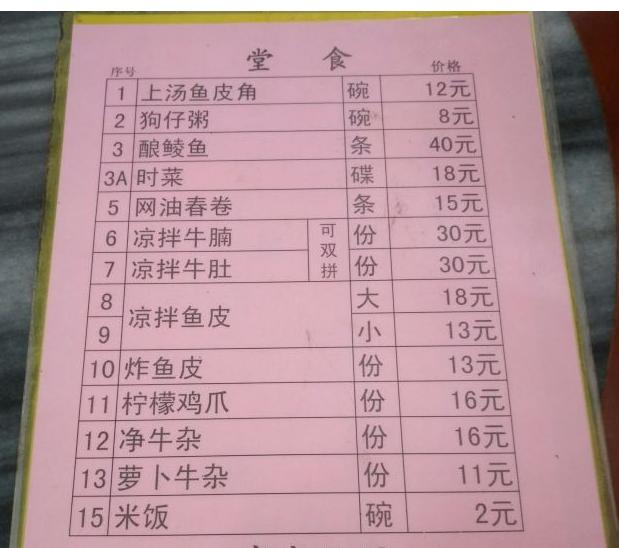 堂 食
序号 价格
1 上汤鱼皮角 碗 12元
2 狗仔粥 碗 8元
3 酿鲮鱼 条 40元
3A 时菜 碟 18元
5 网油春卷 条 15元
6 凉拌牛腩 可双拼 份 30元
7 凉拌牛肚 份 30元
8 凉拌鱼皮 大 18元
9 小 13元
10 炸鱼皮 份 13元
11 柠檬鸡爪 份 16元
12 净牛杂 份 16元
13 萝卜牛杂 份 11元
15 米饭 碗 2元